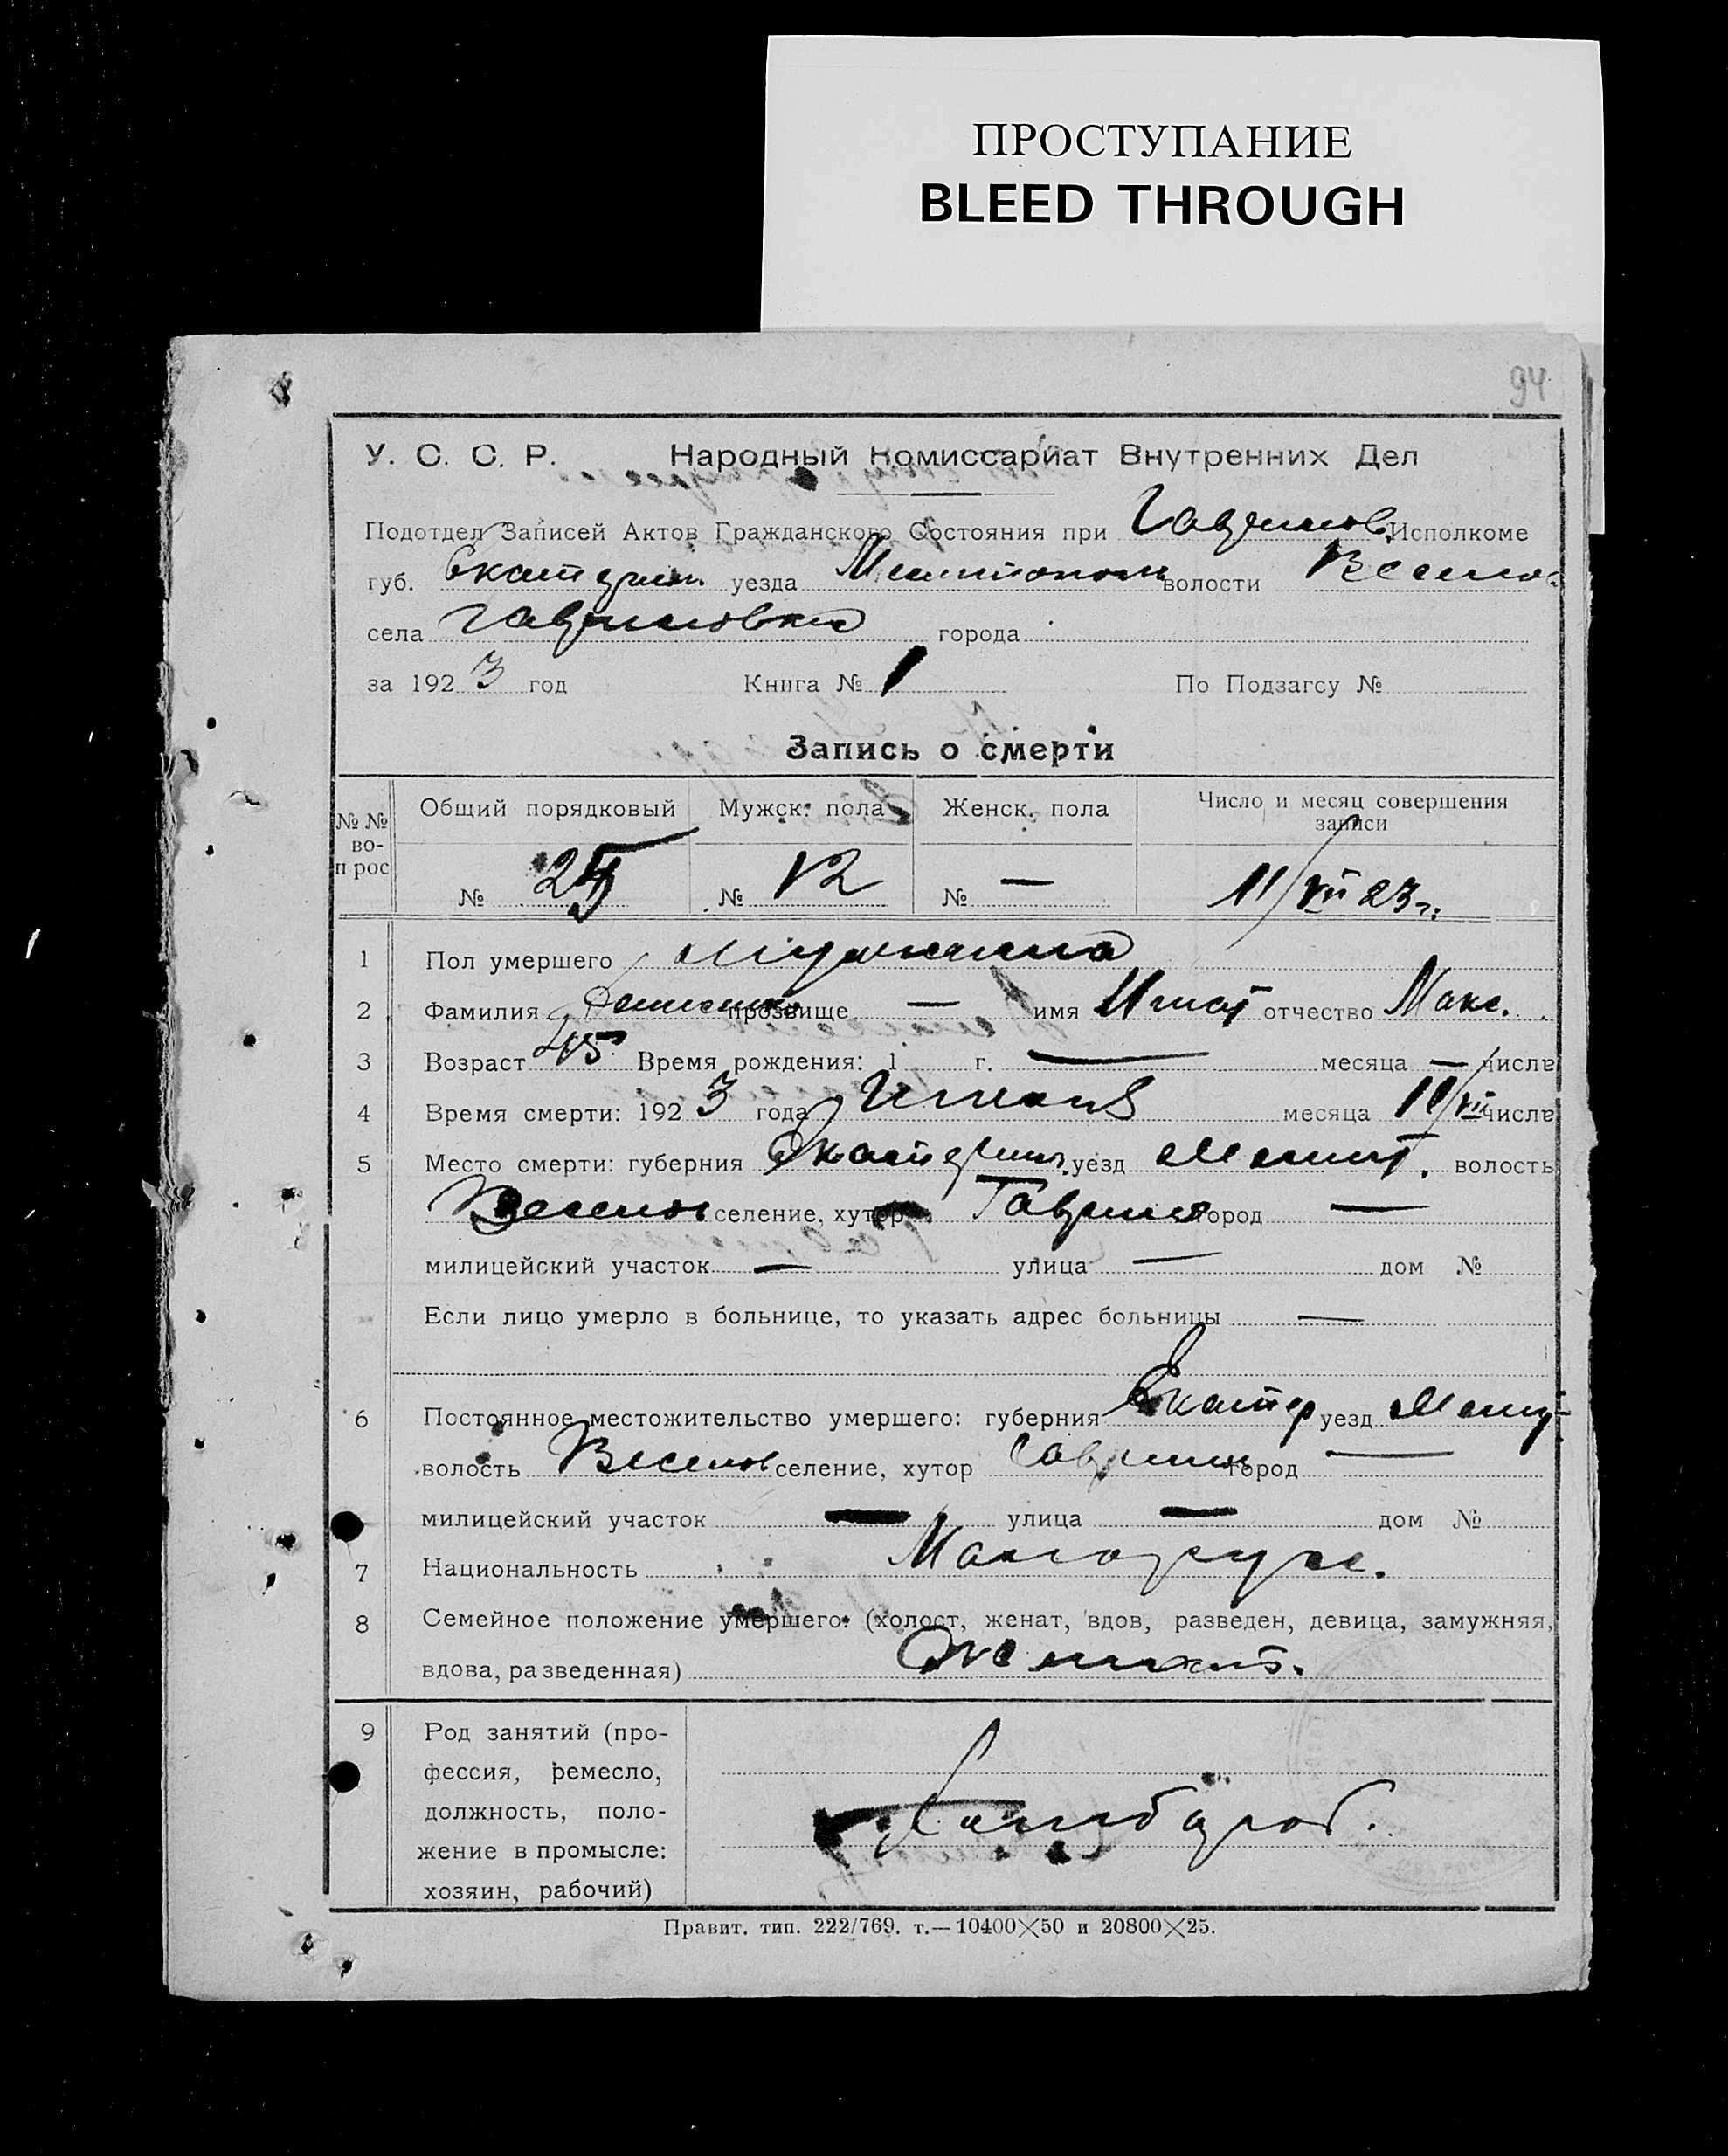 ПРОСТУПАНИЕ
BLEED THROUGH
94
У. С. С. Р. Народный Комиссариат Внутренних Дел
Подотдел Записей Актов Гражданского Состояния при Гаврилов. Исполкоме
губ. Екатерин. уезда Мелитополь волости Весело.
села Гавриловка города
за 1923 год Книга № 1 По Подзагсу №
Запись о смерти
№№ во-прос Общий порядковый Мужск. пола Женск. пола Число и месяц совершения записи
№ 25 № 12 № — 11/VII 23 г.
1 Пол умершего мужчина
2 Фамилия прозвище — имя Игнат отчество Макс.
3 Возраст 45 Время рождения: 1 г. — месяца — числа
4 Время смерти: 1923 года месяца 11/VII числа
5 Место смерти: губерния Екатерин. уезд Мелит. волость
Веселов селение, хутор Гаврило город —
милицейский участок — улица — дом №
Если лицо умерло в больнице, то указать адрес больницы —
6 Постоянное местожительство умершего: губерния Екатер уезд Мелит
волость Веселов селение, хутор Гаврилов город —
милицейский участок — улица — дом №
7 Национальность Малорус.
8 Семейное положение умершего: (холост, женат, вдов, разведен, девица, замужняя,
вдова, разведенная) Женат.
9 Род занятий (про-
фессия, ремесло,
должность, поло-
жение в промысле:
хозяин, рабочий)
Хлебороб.
Правит. тип. 222/769. т.—10400×50 и 20800×25.